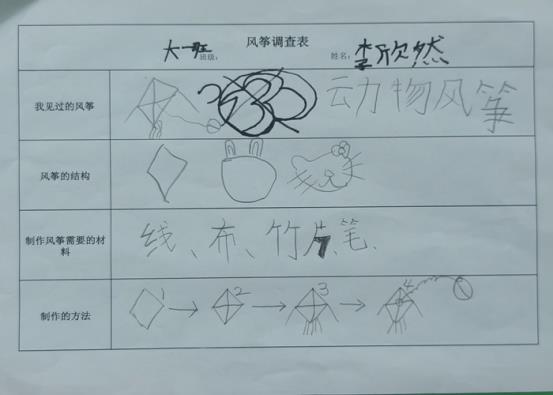 风筝调查表
大一班 班级： 姓名： 李欣然
我见过的风筝 动物风筝
风筝的结构
制作风筝需要的材料 线、布、竹片、笔、
制作的方法 1 2 3 4